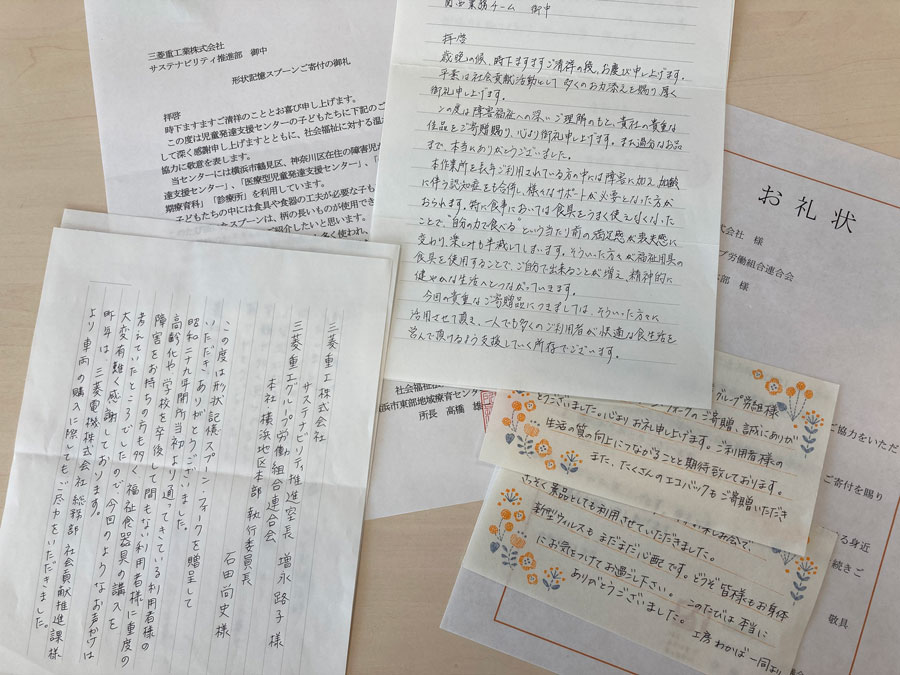 三菱重工業株式会社
サステナビリティ推進部 御中
形状記憶スプーンご寄付の御礼
拝啓
時下ますますご清祥のこととお喜び申し上げます。
この度は児童発達支援センターの子どもたちに下記のご
して深く感謝申し上げますとともに、社会福祉に対する温か
協力に敬意を表します。
当センターには横浜市鶴見区、神奈川区在住の障害児が
達支援センター」、「医療型児童発達支援センター」、「
期療育科」「診療所」を利用しています。
子どもたちの中には食具や食器の工夫が必要な子も
たスプーンは、柄の長いものが使用でき
ご紹介したいと思います。
多く使われ、
社会福祉法
浜市東部地域療育センター
所長 高橋 雄
業務チーム 御中
拝啓
歳晩の候、時下ますますご清祥の段、お慶び申し上げます。
平素は社会貢献活動として多くのお力添えを賜り厚く
御礼申し上げます。
この度は障害福祉への深いご理解のもと、貴社の貴重な
佳品をご寄贈賜り、心より御礼申し上げます。また過分なお品
まで、本当にありがとうございました。
本作業所を長年ご利用されている方の中には障害に加え、加齢
に伴う認知症をも合併し様々なサポートが必要となった方が
おられます。特に食事においては食具をうまく使えなくなった
ことで、自分の力で食べるという当たり前の満足感が喪失感に
変わり、楽しみも半減してしまいます。そういった方々が福祉用具の
食具を使用することで、ご自分で出来ることが増え、精神的に
健やかな生活へとつながっていきます。
今回の貴重なご寄贈品につきましては、そういった方々に
活用させて頂き、一人でも多くのご利用者が快適な食生活を
営んで頂けるよう支援していく所存でございます。
三菱重工株式会社
サステナビリティ推進室長 増永 路子 様
三菱重工グループ労働組合連合会
本社 横浜地区本部 執行委員長
石田 向史 様
この度は形状記憶スプーン・フォークを贈呈して
いただきありがとうございました。
昭和二十九年開所当初より通ってきている利用者様の
高齢化や学校を卒後して間もない利用者様に重度の
障害をお持ちの方も多く福祉食器具の購入を
考えていたところでしたので、今回のようなお声がけは
大変有難く感謝しております。
昨年は、三菱電機株式会社総務部 社会貢献推進課様
より車両の購入に際してもご尽力をいただきました。
お礼状
式会社 様
プ労働組合連合会
本部 様
ご協力をいただ
ご寄付を賜り
る身近
続きご
敬具
グループ労組様
フォークのご寄贈、誠にありが
とうございました。心よりお礼申し上げます。ご利用者様の
生活の質の向上につながることと期待致しております。
また、たくさんのエコバックもご寄贈いただき
さっそく景品としても利用させていただきました。
新型ウィルスもまだまだ心配です。どうぞ皆様もお身体
にお気をつけてお過ごし下さい。このたびは本当に
ありがとうございました。
工房 わかば 一同より